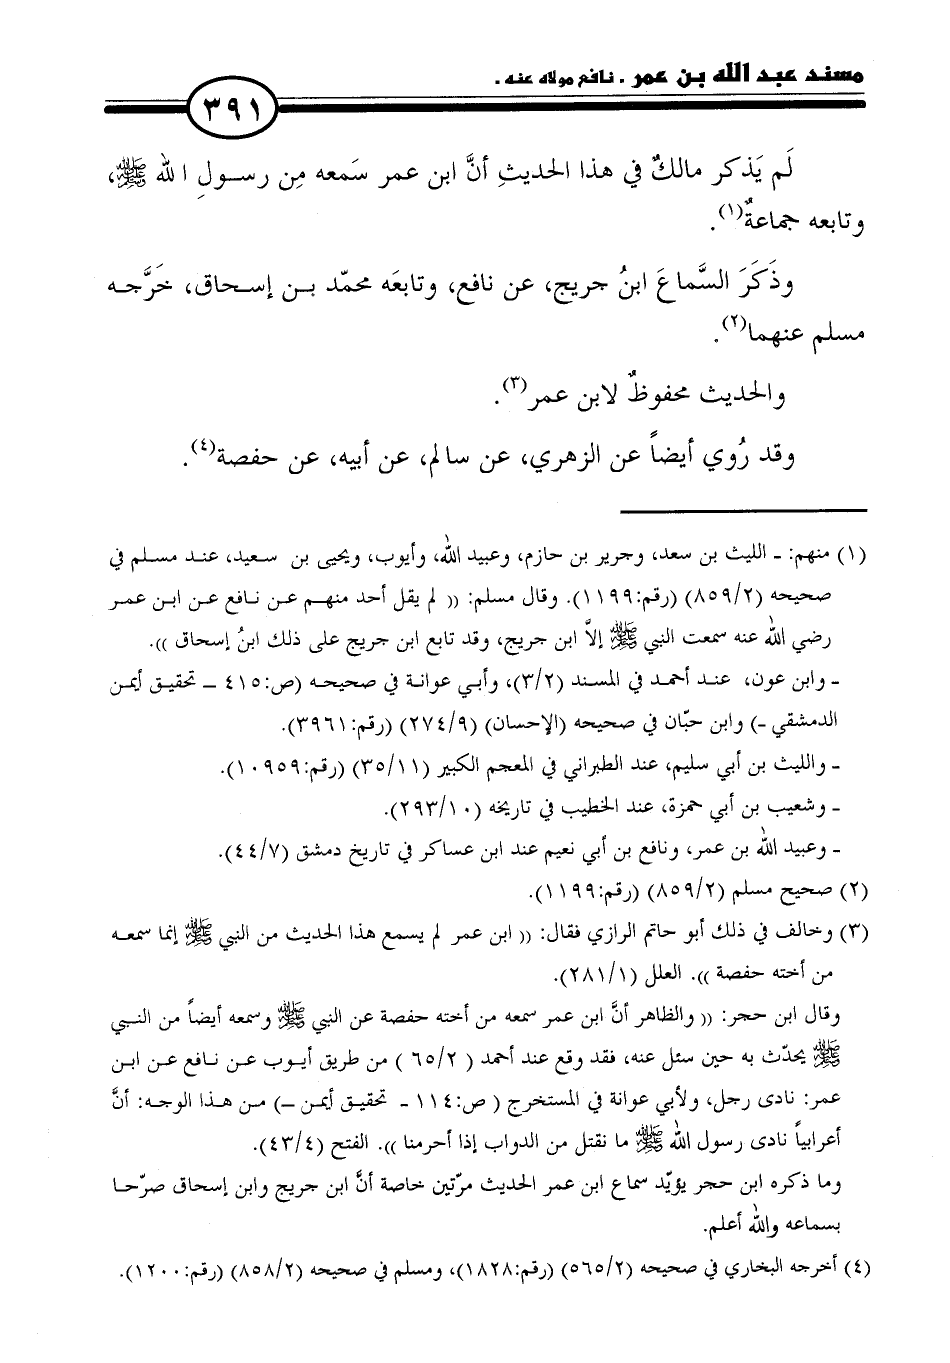 مسند عبد الله بن عمر . نافع مولاه عنه .
٣٩١
لَم يَذكر مالكٌ في هذا الحديثِ أنَّ ابن عمر سَمعه مِن رسولِ الله ﷺ،
وتابعه جماعةٌ(١).
وذَكَرَ السَّماعَ ابنُ جريج، عن نافع، وتابعَه محمّد بن إسحاق، خَرَّجه
مسلم عنهما(٢).
والحديث محفوظٌ لابن عمر(٣).
وقد رُوي أيضاً عن الزهري، عن سالم، عن أبيه، عن حفصة(٤).
(١) منهم: ـ الليث بن سعد، وجرير بن حازم، وعبيد الله، وأيوب، ويحيى بن سعيد، عند مسلم في
صحيحه (٨٥٩/٢) (رقم:١١٩٩). وقال مسلم: (( لم يقل أحد منهم عن نافع عن ابن عمر
رضي الله عنه سمعت النبي ﷺ إلاَّ ابن جريج، وقد تابع ابن جريج على ذلك ابنُ إسحاق )).
ـ وابن عون، عند أحمد في المسند (٣/٢)، وأبي عوانة في صحيحه (ص:٤١٥ ـ تحقيق أيمن
الدمشقي ـ) وابن حبّان في صحيحه (الإحسان) (٢٧٤/٩) (رقم:٣٩٦١).
ـ والليث بن أبي سليم، عند الطبراني في المعجم الكبير (٣٥/١١) (رقم:١٠٩٥٩).
ـ وشعيب بن أبي حمزة، عند الخطيب في تاريخه (٢٩٣/١٠).
ـ وعبيد الله بن عمر، ونافع بن أبي نعيم عند ابن عساكر في تاريخ دمشق (٤٤/٧).
(٢) صحيح مسلم (٨٥٩/٢) (رقم:١١٩٩).
(٣) وخالف في ذلك أبو حاتم الرازي فقال: (( ابن عمر لم يسمع هذا الحديث من النبي ﷺ إنما سمعه
من أخته حفصة )). العلل (٢٨١/١).
وقال ابن حجر: (( والظاهر أنَّ ابن عمر سمعه من أخته حفصة عن النبي ﷺ وسمعه أيضاً من النبي
ﷺ يحدّث به حين سئل عنه، فقد وقع عند أحمد ( ٦٥/٢ ) من طريق أيوب عن نافع عن ابن
عمر: نادى رجل، ولأبي عوانة في المستخرج ( ص:١١٤ ـ تحقيق أيمن ـ) من هذا الوجه: أنَّ
أعرابياً نادى رسول الله ﷺ ما نقتل من الدواب إذا أحرمنا )). الفتح (٤٣/٤).
وما ذكره ابن حجر يؤيّد سماع ابن عمر الحديث مرّتين خاصة أنَّ ابن جريج وابن إسحاق صرّحا
بسماعه والله أعلم.
(٤) أخرجه البخاري في صحيحه (٥٦٥/٢) (رقم:١٨٢٨)، ومسلم في صحيحه (٨٥٨/٢) (رقم:١٢٠٠).